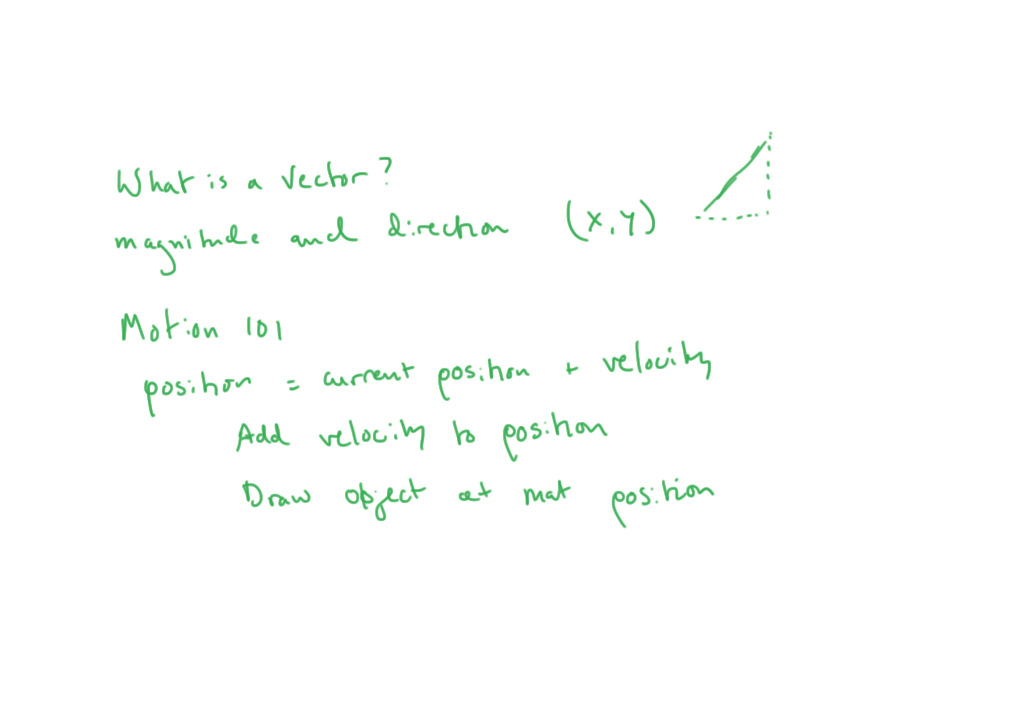 What is a vector?
magnitude and direction (x, y)
Motion 101
position = current position + velocity
Add velocity to position
Draw object at that position